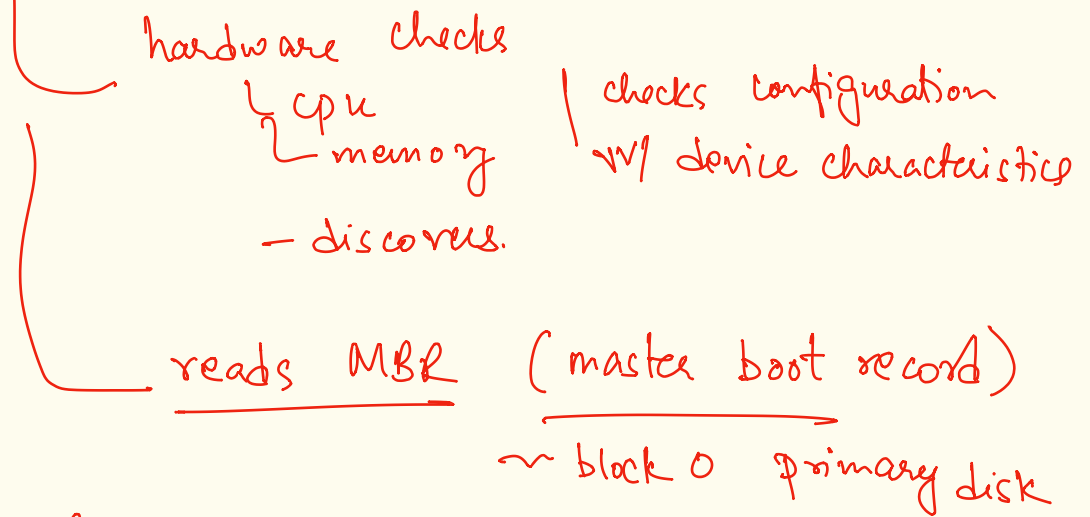 hardware checks
cpu
memory
checks configuration
w/ device characteristics
- discovers.
reads MBR (master boot record)
~ block 0 primary disk